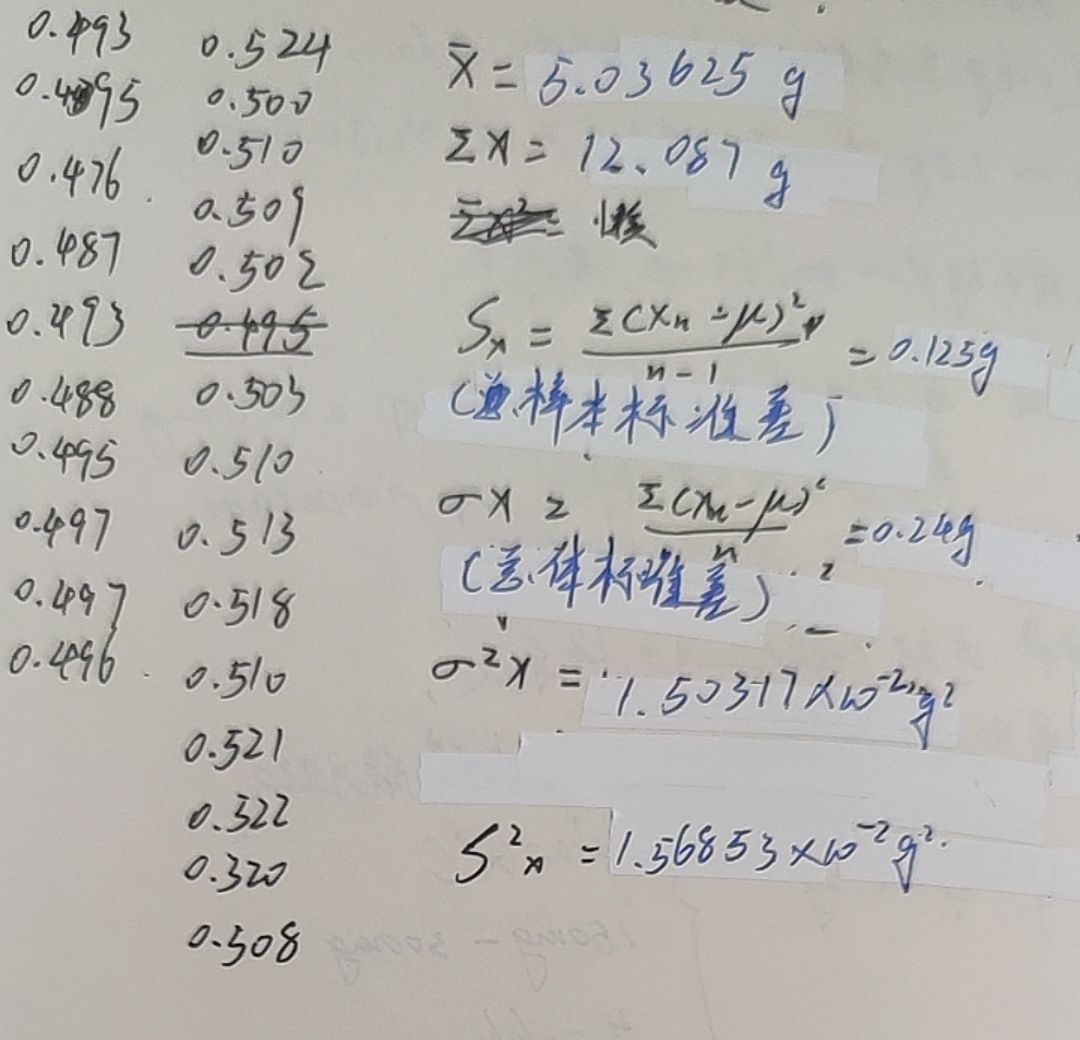 0.493
0.495
0.476
0.487
0.493
0.488
0.495
0.497
0.497
0.496
0.524
0.500
0.510
0.509
0.502
0.495
0.503
0.510
0.513
0.518
0.510
0.521
0.522
0.520
0.508
x̄ = 5.03625 g
Σx = 12.087 g
Σx² =
Sx = Σ(xn - μ)² / n-1 = 0.125g
(样本标准差)
σx = Σ(xn - μ)² / n = 0.24g
(总体标准差)
σ²x = 1.50317×10⁻² g²
S²x = 1.56853×10⁻² g².